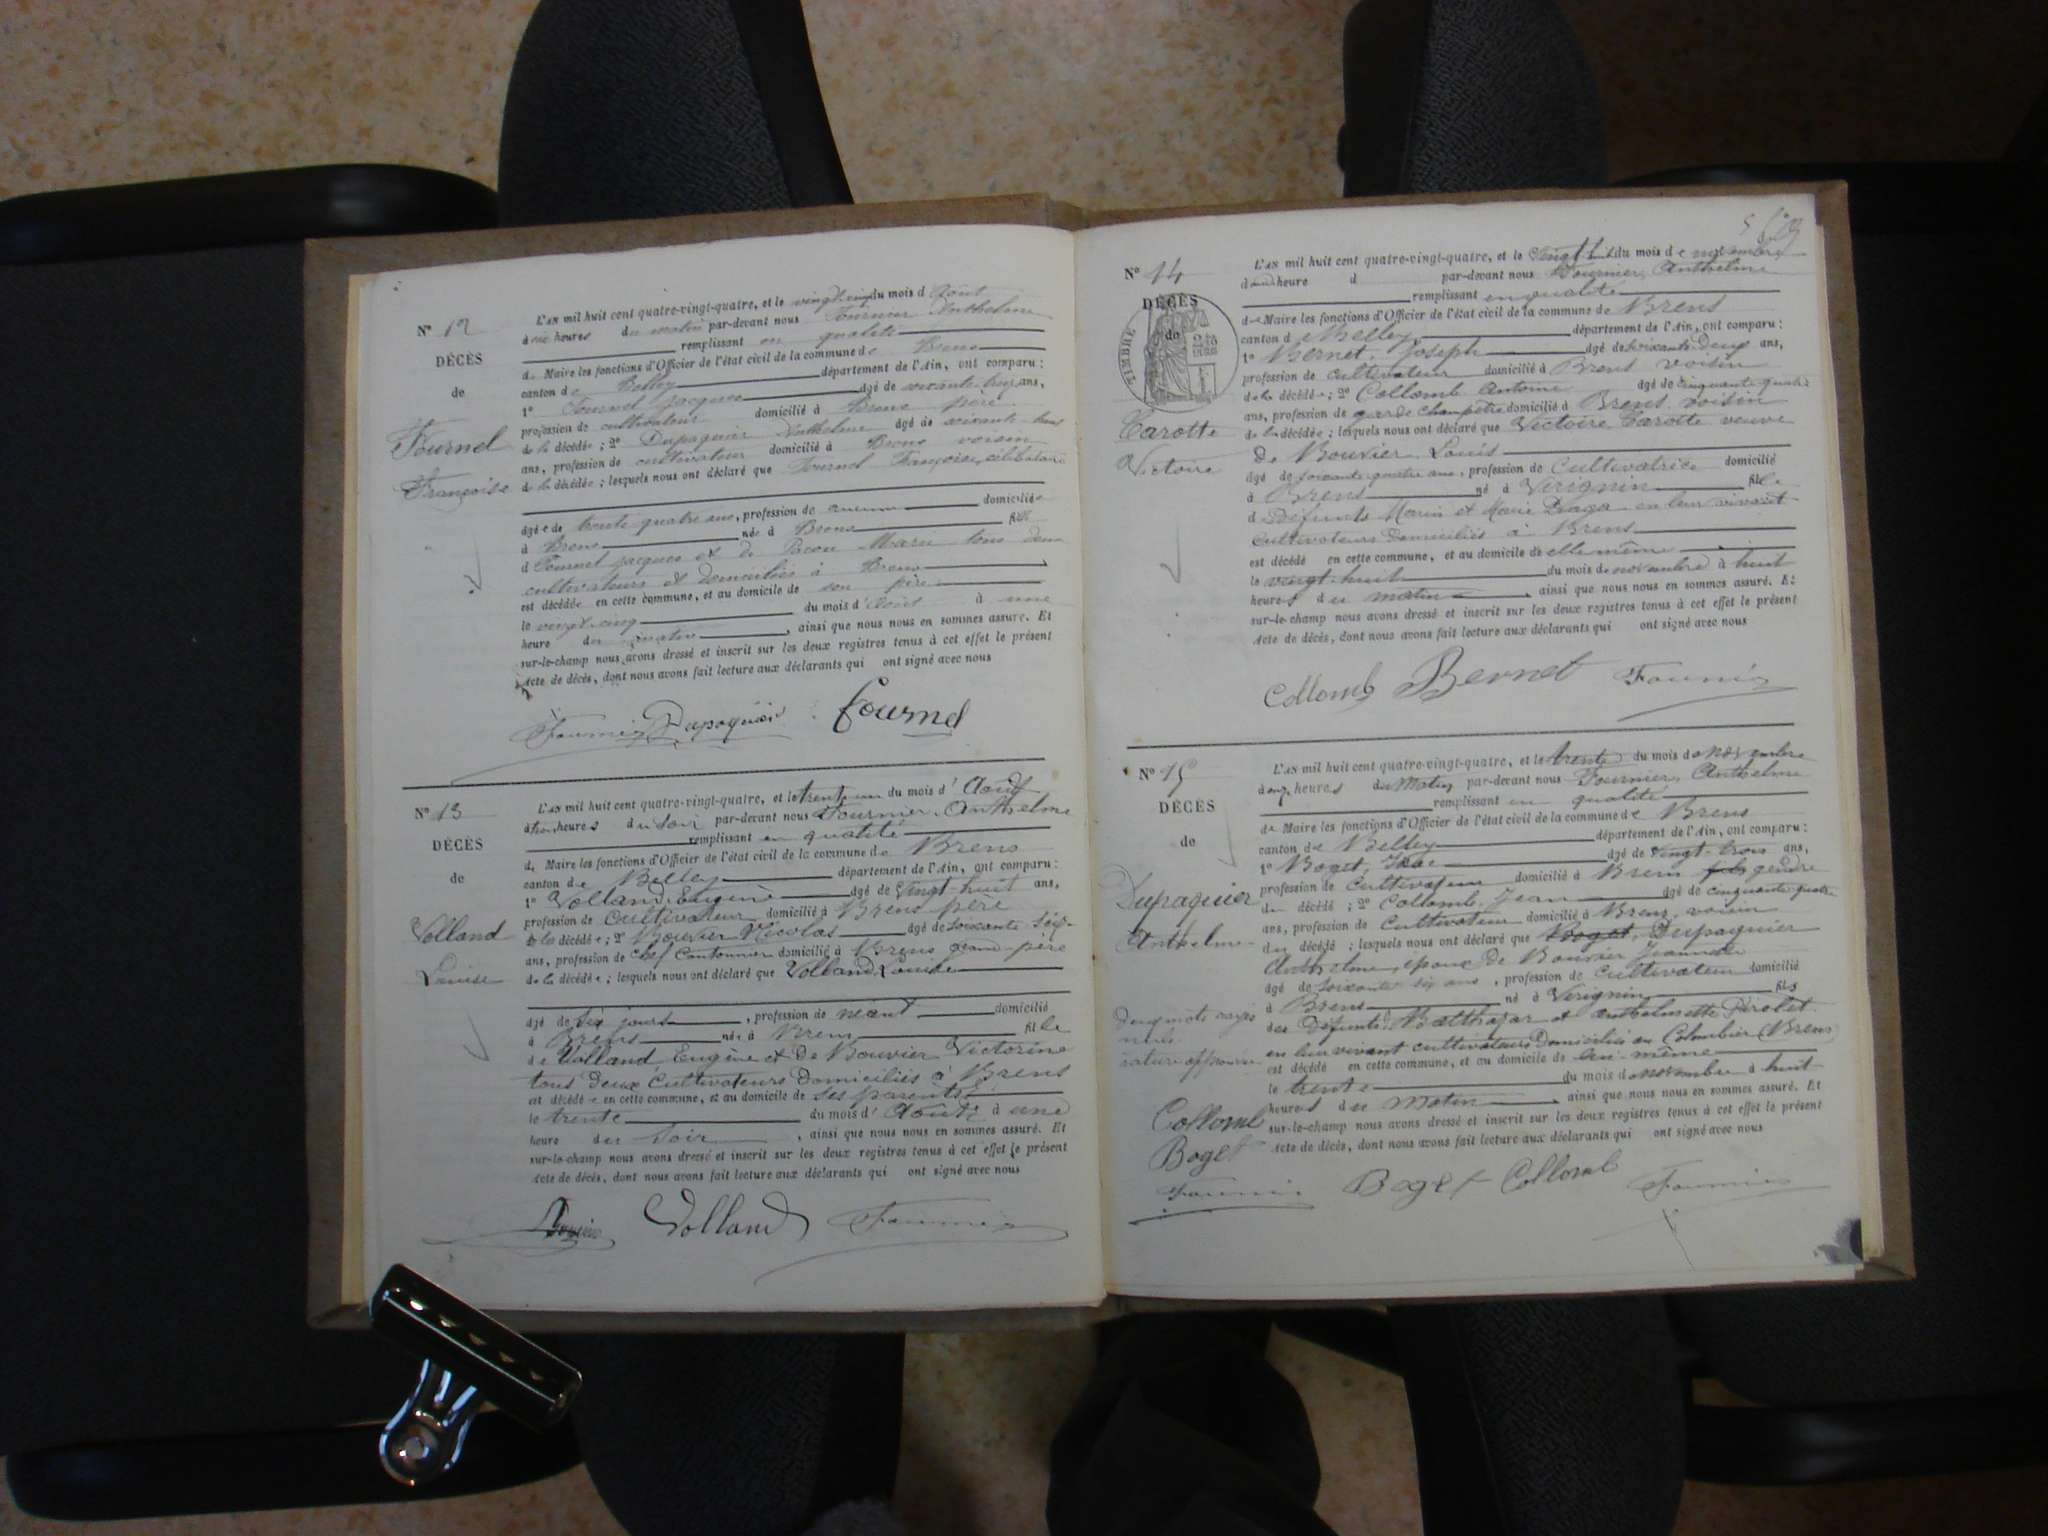 N° 12
DÉCÈS
de
Fournel
Françoise
L'AN mil huit cent quatre-vingt-quatre, et le vingt cinq du mois d'Août
à heures du matin par-devant nous Fournier Anthelme
remplissant en qualité
de Maire les fonctions d'Officier de l'état civil de la commune de Brens
canton de Belley département de l'Ain, ont comparu :
1° Fournel Jacques âgé de soixante ans,
profession de cultivateur domicilié à Brens père
de la décédée ; 2° Dupaquier Anthelme âgé de soixante
ans, profession de cultivateur domicilié à Brens voisin
de la décédée ; lesquels nous ont déclaré que Fournel Françoise, célibataire
âgée de trente quatre ans, profession de aucune domiciliée
à Brens née à Brens fille
d Fournel Jacques et de Pacou Marie tous deux
cultivateurs et domiciliés à Brens
est décédée en cette commune, et au domicile de son père
le vingt-cinq du mois d'août à une
heure du matin, ainsi que nous nous en sommes assuré. Et
sur-le-champ nous avons dressé et inscrit sur les deux registres tenus à cet effet le présent
Acte de décès, dont nous avons fait lecture aux déclarants qui ont signé avec nous
Fournier Dupaquier Fournel
N° 13
DÉCÈS
de
Volland
Louise
L'AN mil huit cent quatre-vingt-quatre, et le trente un du mois d'Août
à heures du soir par-devant nous Fournier, Anthelme
remplissant en qualité
de Maire les fonctions d'Officier de l'état civil de la commune de Brens
canton de Belley département de l'Ain, ont comparu :
1° Volland, Eugène âgé de vingt-huit ans,
profession de cultivateur domicilié à Brens père
de la décédée ; 2° Bouvier Nicolas âgé de soixante
ans, profession de chef cantonnier domicilié à Brens grand-père
de la décédée ; lesquels nous ont déclaré que Volland, Louise
âgé de six jours, profession de néant domicilié
à Brens née à Brens fille
de Volland, Eugène et de Bouvier Victorine
tous deux cultivateurs domiciliés à Brens
est décédée en cette commune, et au domicile de ses parents
le trente du mois d'Août à une
heure du soir, ainsi que nous nous en sommes assuré. Et
sur-le-champ nous avons dressé et inscrit sur les deux registres tenus à cet effet le présent
Acte de décès, dont nous avons fait lecture aux déclarants qui ont signé avec nous
Bouvier Volland Fournier
N° 14
DÉCÈS
de
TIMBRE
Carotte
Victoire
L'AN mil huit cent quatre-vingt-quatre, et le vingt du mois de novembre
à heure d par-devant nous Fournier, Anthelme
remplissant en qualité
de Maire les fonctions d'Officier de l'état civil de la commune de Brens
canton de Belley département de l'Ain, ont comparu :
1° Bernet, Joseph âgé de soixante-deux ans,
profession de cultivateur domicilié à Brens voisin
de la décédée ; 2° Collomb Antoine âgé de cinquante quatre
ans, profession de garde champêtre domicilié à Brens, voisin
de la décédée ; lesquels nous ont déclaré que Victoire Carotte veuve
de Bouvier Louis
âgé de soixante quatre ans, profession de Cultivatrice domicilié
à Brens né à Virignin fille
d Défunts Marin et Marie en leur vivant
cultivateurs domiciliés à Brens
est décédé en cette commune, et au domicile de elle même
le vingt-huit du mois de novembre à huit
heures du matin, ainsi que nous nous en sommes assuré. Et
sur-le-champ nous avons dressé et inscrit sur les deux registres tenus à cet effet le présent
Acte de décès, dont nous avons fait lecture aux déclarants qui ont signé avec nous
Collomb Bernet Fournier
N° 15
DÉCÈS
de
Dupaquier
Anthelme
Deux mots rayés
nuls
rature approuvée
Collomb
Boget
Fournier
L'AN mil huit cent quatre-vingt-quatre, et le trente du mois de novembre
à onze heures du matin par-devant nous Fournier, Anthelme
remplissant en qualité
de Maire les fonctions d'Officier de l'état civil de la commune de Brens
canton de Belley département de l'Ain, ont comparu :
1° Boget, âgé de vingt-trois ans,
profession de cultivateur domicilié à Brens fils gendre
du décédé ; 2° Collomb, Jean âgé de cinquante quatre
ans, profession de cultivateur domicilié à Brens, voisin
du décédé ; lesquels nous ont déclaré que Boget, Dupaquier
Anthelme, époux de Bouvier Jeannette
âgé de soixante six ans, profession de cultivateur domicilié
à Brens né à Virignin fils
des Défunts Balthazar et anthelmette Pérolet
en leur vivant cultivateurs domiciliés au Colombier (Brens)
est décédé en cette commune, et au domicile de lui-même
le trente du mois de novembre à huit
heures du matin, ainsi que nous nous en sommes assuré. Et
sur-le-champ nous avons dressé et inscrit sur les deux registres tenus à cet effet le présent
Acte de décès, dont nous avons fait lecture aux déclarants qui ont signé avec nous
Boget Collomb Fournier